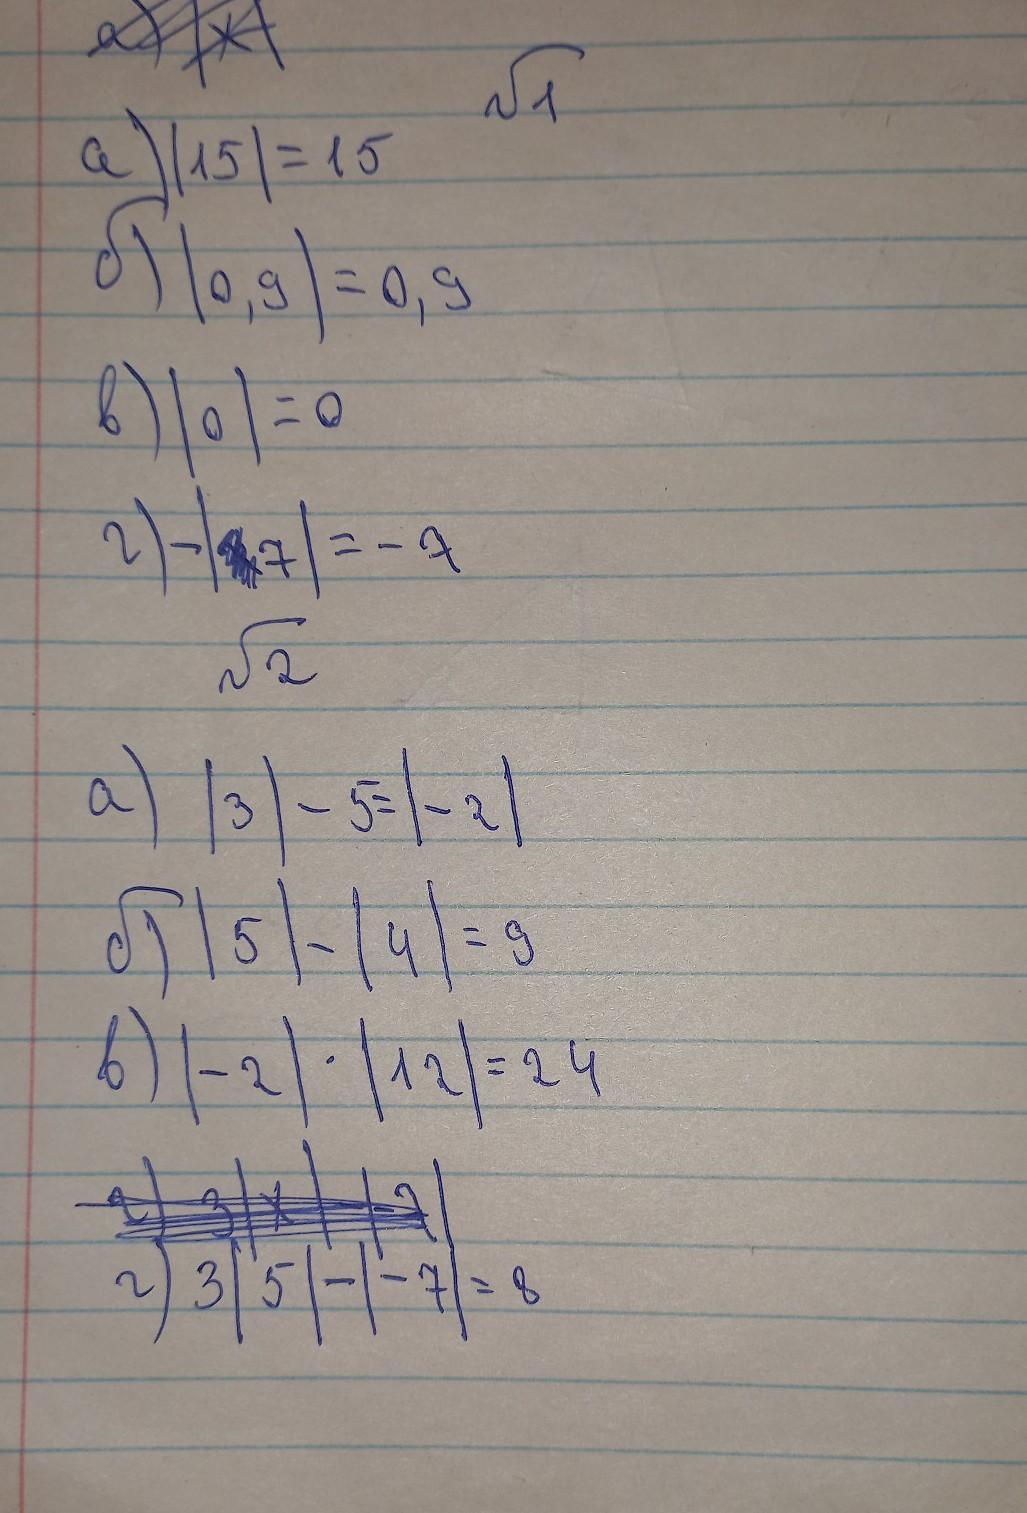 √1
а) |15| = 15
б) |0,9| = 0,9
в) |0| = 0
г) -|7| = -7
√2
а) |3| - 5 = |-2|
б) |5| - |4| = 9
в) |-2| · |12| = 24
г) 3|5| - |-7| = 8